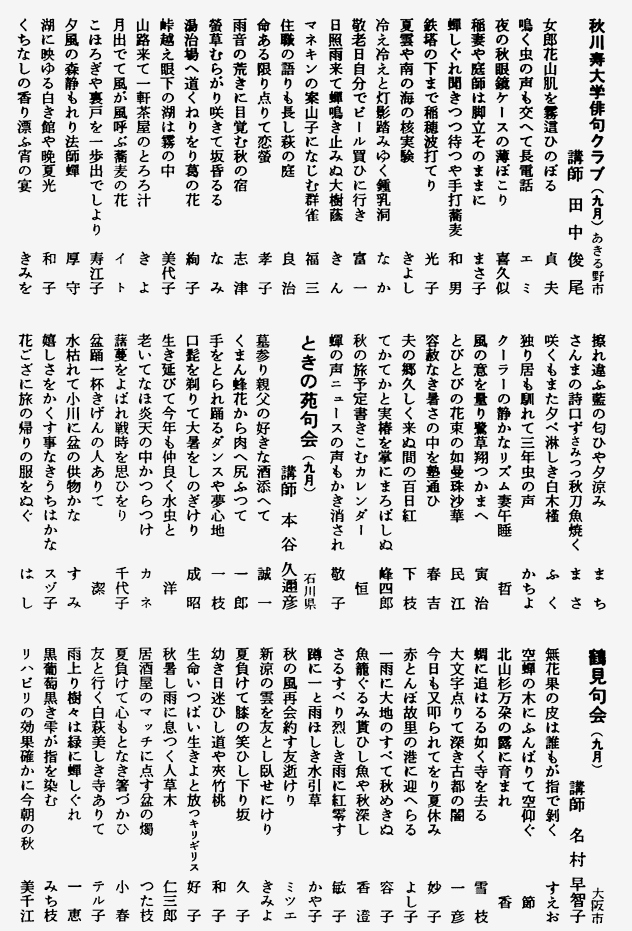 秋川寿大学俳句クラブ（九月）あきる野市
講師 田中俊尾
女郎花山肌を霧這ひのぼる 貞夫
鳴く虫の声も交へて長電話 エミ
夜の秋眼鏡ケースの薄ぼこり 喜久似
稲妻や庭師は脚立そのままに まさ子
蟬しぐれ聞きつつ待つや手打蕎麦 和男
鉄塔の下まで稲穂波打てり 光子
夏雲や南の海の核実験 きよし
冷え冷えと灯影踏みゆく鍾乳洞 なか
敬老日自分でビール買ひに行き 富一
日照雨来て蟬鳴き止みぬ大樹蔭 きん
マネキンの案山子になじむ群雀 福三
住職の語りも長し萩の庭 良治
命ある限り点りて恋螢 孝子
雨音の荒きに目覚む秋の宿 志津
螢草むらがり咲きて坂昏るる なみ
湯治場へ道くねりをり葛の花 絢子
峠越え眼下の湖は霧の中 美代子
山路来て一軒茶屋のとろろ汁 きよ
月出でて風が風呼ぶ蕎麦の花 イト
こほろぎや裏戸を一歩出でしより 寿江子
夕風の森静もれり法師蟬 厚守
湖に映ゆる白き館や晩夏光 和子
くちなしの香り漂ふ宵の宴 きみを
擦れ違ふ藍の匂ひや夕涼み まち
さんまの詩口ずさみつつ秋刀魚焼く まさ
咲くもまた夕べ淋しき白木槿 ふく
独り居も馴れて三年虫の声 かちよ
クーラーの静かなリズム妻午睡 哲
風の意を量り鷺草翔つかまへ 寅治
とびとびの花束の如曼珠沙華 民江
容赦なき暑さの中を塾通ひ 春吉
夫の郷久しく来ぬ間の百日紅 下枝
てかてかと実椿を掌にまろばしぬ 峰四郎
秋の旅予定書きこむカレンダー 恒
蟬の声ニュースの声もかき消され 敬子
ときの苑句会（九月）
講師 本谷久邇彦 石川県
墓参り親父の好きな酒添へて 誠一
くまん蜂花から肉へ尻ふつて 一郎
手をとられ踊るダンスや夢心地 一枝
口髭を剃りて大暑をしのぎけり 成昭
生き延びて今年も仲良く水虫と 洋
老いてなほ炎天の中かつらつけ カネ
藷蔓をよばれ戦時を思ひをり 千代子
盆踊一杯きげんの人ありて 潔
水枯れて小川に盆の供物かな すみ
嬉しさをかくす事なきうちはかな スヅ子
花ござに旅の帰りの服をぬぐ はし
鶴見句会（九月）
講師 名村早智子 大阪市
無花果の皮は誰もが指で剝く すえお
空蟬の木にふんばりて空仰ぐ 節
北山杉万朶の露に育まれ 香
蜩に追はるる如く寺を去る 雪枝
大文字点りて深き古都の闇 一彦
今日も又叩られてをり夏休み 妙子
赤とんぼ故里の港に迎へらる よし子
一雨に大地のすべて秋めきぬ 容子
魚籠ぐるみ貰ひし魚や秋深し 香澄
さるすべり烈しき雨に紅零す 敏子
蹲に一と雨ほしき水引草 かや子
秋の風再会約す友逝けり ミツエ
新涼の雲を友とし臥せにけり きみよ
夏負けて膝の笑ひし下り坂 久子
幼き日迷ひし道や夾竹桃 和子
生命いつぱい生きよと放つキリギリス 好子
秋暑し雨に息つく人草木 仁三郎
居酒屋のマッチに点す盆の燭 つた枝
夏負けて心もとなき箸づかひ 小春
友と行く白萩美しき寺ありて テル子
雨上り樹々は緑に蟬しぐれ 一恵
黒葡萄黒き雫が指を染む みち枝
リハビリの効果確かに今朝の秋 美千江